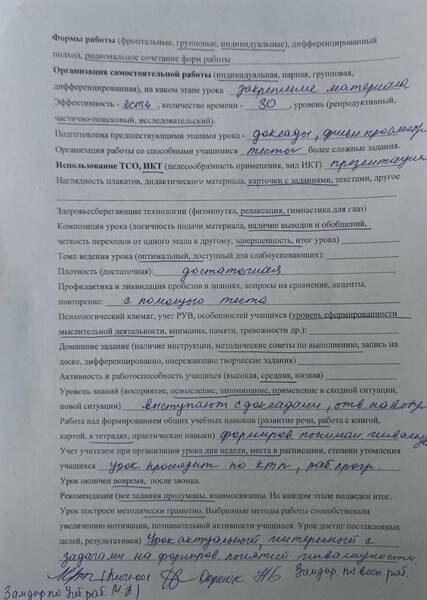 Формы работы (фронтальные, групповые, индивидуальные), дифференцированный
подход, рациональное сочетание форм работы
Организация самостоятельной работы (индивидуальная, парная, групповая,
дифференцированная), на каком этапе урока закрепление материала
Эффективность - есть, количество времени - 30, уровень (репродуктивный,
частично-поисковый, исследовательский).
Подготовлена предшествующими этапами урока - доклады,
Организация работы со способными учащимися тесты более сложные задания.
Использование ТСО, ИКТ (целесообразность применения, вид ИКТ) презентация
Наглядность плакатов, дидактического материала, карточки с заданиями, текстами, другое
Здоровьесберегающие технологии (физминутка, релаксация, гимнастика для глаз)
Композиция урока (логичность подачи материала, наличие выводов и обобщений,
четкость переходов от одного этапа к другому, завершенность, итог урока)
Темп ведения урока (оптимальный, доступный для слабоуспевающих):
Плотность (достаточная): достаточная
Профилактика и ликвидация пробелов в знаниях, вопросы на сравнение, акценты,
повторение: с помощью теста
Психологический климат, учет РУВ, особенностей учащихся (уровень сформированности
мыслительной деятельности, внимания, памяти, тревожности др.):
Домашние задание (наличие инструкции, методические советы по выполнению, запись на
доске, дифференцированно, опережающие творческие задания)
Активность и работоспособность учащихся (высокая, средняя, низкая)
Уровень знаний (восприятие, осмысление, запоминание, применение в сходной ситуации,
новой ситуации) выступают с докладами, отв. на
Работа над формированием общих учебных навыков (развитие речи, работа с книгой,
картой, в тетрадях, практические навыки) формиров. пониман.
Учет учителем при организации урока дня недели, места в расписании, степени утомления
учащихся урок проходит по КТП, раб. прогр.
Урок окончен вовремя, после звонка.
Рекомендации (все задания продуманы, взаимосвязаны. На каждом этапе подведен итог.
Урок построен методически грамотно. Выбранные методы работы способствовали
увеличению мотивации, познавательной активности учащихся. Урок достиг поставленных
целей, результативен) Урок актуальный, интересный с
задачами на формиров. понятий инвалидности.
Замдир. по восп. раб.
Замдир по Уч. раб.